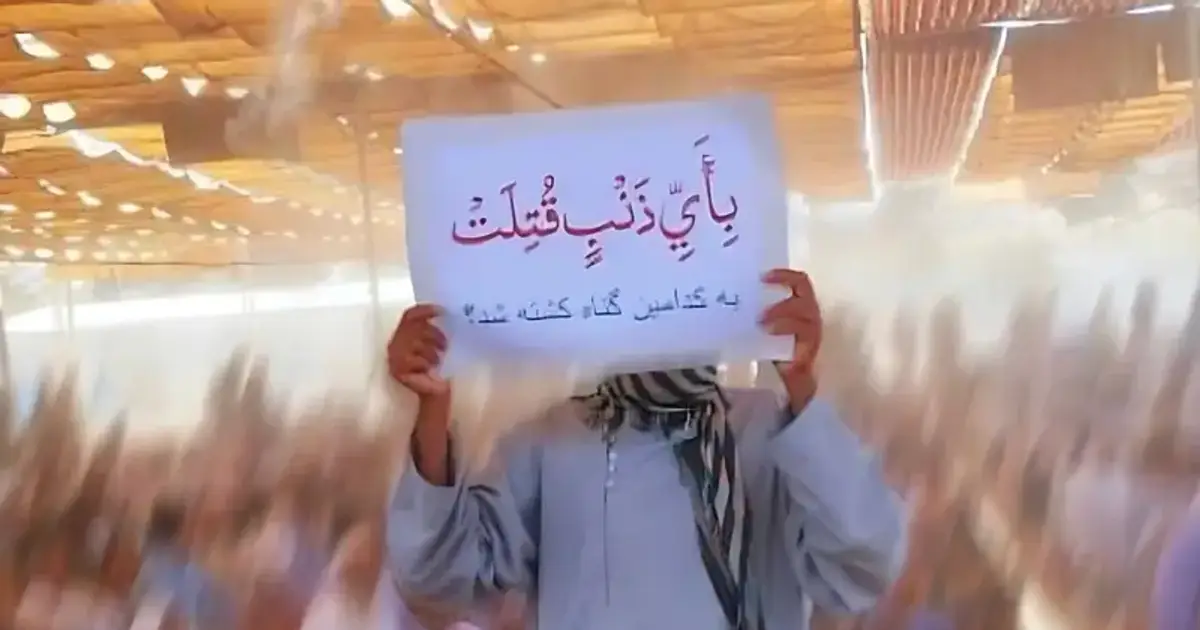 بِأَيِّ ذَنْبٍ قُتِلَتْ
به کدامین گناه کشته شد؟